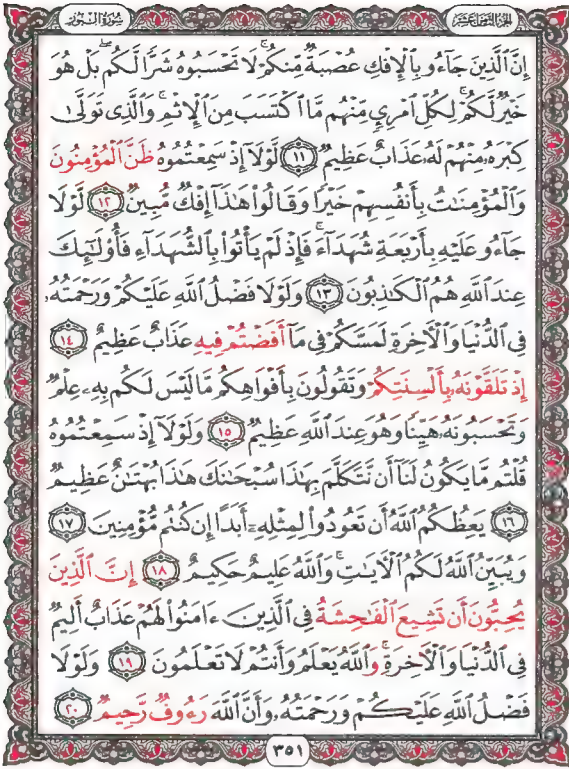 الجزء الثامن عشر
سورة النور
إِنَّ ٱلَّذِينَ جَآءُو بِٱلْإِفْكِ عُصْبَةٌ مِّنكُمْ ۚ لَا تَحْسَبُوهُ شَرًّا لَّكُم ۖ بَلْ هُوَ
خَيْرٌ لَّكُمْ ۚ لِكُلِّ ٱمْرِئٍ مِّنْهُم مَّا ٱكْتَسَبَ مِنَ ٱلْإِثْمِ ۚ وَٱلَّذِى تَوَلَّىٰ
كِبْرَهُۥ مِنْهُمْ لَهُۥ عَذَابٌ عَظِيمٌ ١١ لَّوْلَآ إِذْ سَمِعْتُمُوهُ ظَنَّ ٱلْمُؤْمِنُونَ
وَٱلْمُؤْمِنَٰتُ بِأَنفُسِهِمْ خَيْرًا وَقَالُوا۟ هَٰذَآ إِفْكٌ مُّبِينٌ ١٢ لَّوْلَا
جَآءُو عَلَيْهِ بِأَرْبَعَةِ شُهَدَآءَ ۚ فَإِذْ لَمْ يَأْتُوا۟ بِٱلشُّهَدَآءِ فَأُو۟لَٰٓئِكَ
عِندَ ٱللَّهِ هُمُ ٱلْكَٰذِبُونَ ١٣ وَلَوْلَا فَضْلُ ٱللَّهِ عَلَيْكُمْ وَرَحْمَتُهُۥ
فِى ٱلدُّنْيَا وَٱلْآخِرَةِ لَمَسَّكُمْ فِى مَآ أَفَضْتُمْ فِيهِ عَذَابٌ عَظِيمٌ ١٤
إِذْ تَلَقَّوْنَهُۥ بِأَلْسِنَتِكُمْ وَتَقُولُونَ بِأَفْوَاهِكُم مَّا لَيْسَ لَكُم بِهِۦ عِلْمٌ
وَتَحْسَبُونَهُۥ هَيِّنًا وَهُوَ عِندَ ٱللَّهِ عَظِيمٌ ١٥ وَلَوْلَآ إِذْ سَمِعْتُمُوهُ
قُلْتُم مَّا يَكُونُ لَنَآ أَن نَّتَكَلَّمَ بِهَٰذَا سُبْحَٰنَكَ هَٰذَا بُهْتَٰنٌ عَظِيمٌ
١٦ يَعِظُكُمُ ٱللَّهُ أَن تَعُودُوا۟ لِمِثْلِهِۦٓ أَبَدًا إِن كُنتُم مُّؤْمِنِينَ ١٧
وَيُبَيِّنُ ٱللَّهُ لَكُمُ ٱلْآيَٰتِ ۚ وَٱللَّهُ عَلِيمٌ حَكِيمٌ ١٨ إِنَّ ٱلَّذِينَ
يُحِبُّونَ أَن تَشِيعَ ٱلْفَٰحِشَةُ فِى ٱلَّذِينَ ءَامَنُوا۟ لَهُمْ عَذَابٌ أَلِيمٌ
فِى ٱلدُّنْيَا وَٱلْآخِرَةِ ۚ وَٱللَّهُ يَعْلَمُ وَأَنتُمْ لَا تَعْلَمُونَ ١٩ وَلَوْلَا
فَضْلُ ٱللَّهِ عَلَيْكُمْ وَرَحْمَتُهُۥ وَأَنَّ ٱللَّهَ رَءُوفٌ رَّحِيمٌ ٢٠
٣٥١